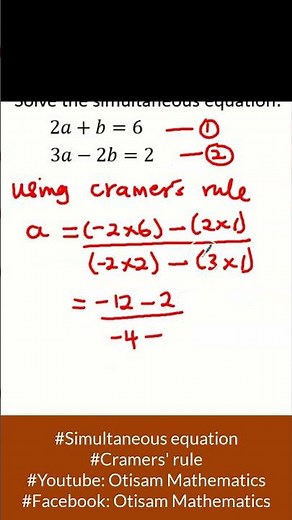 Solve the simultaneous equation:
2a + b = 6 — ①
3a − 2b = 2 — ②
using cramer's rule
a = (-2×6) - (2×1)
(-2×2) - (3×1)
= -12 - 2
-4 -
#Simultaneous equation
#Cramers' rule
#Youtube: Otisam Mathematics
#Facebook: Otisam Mathematics